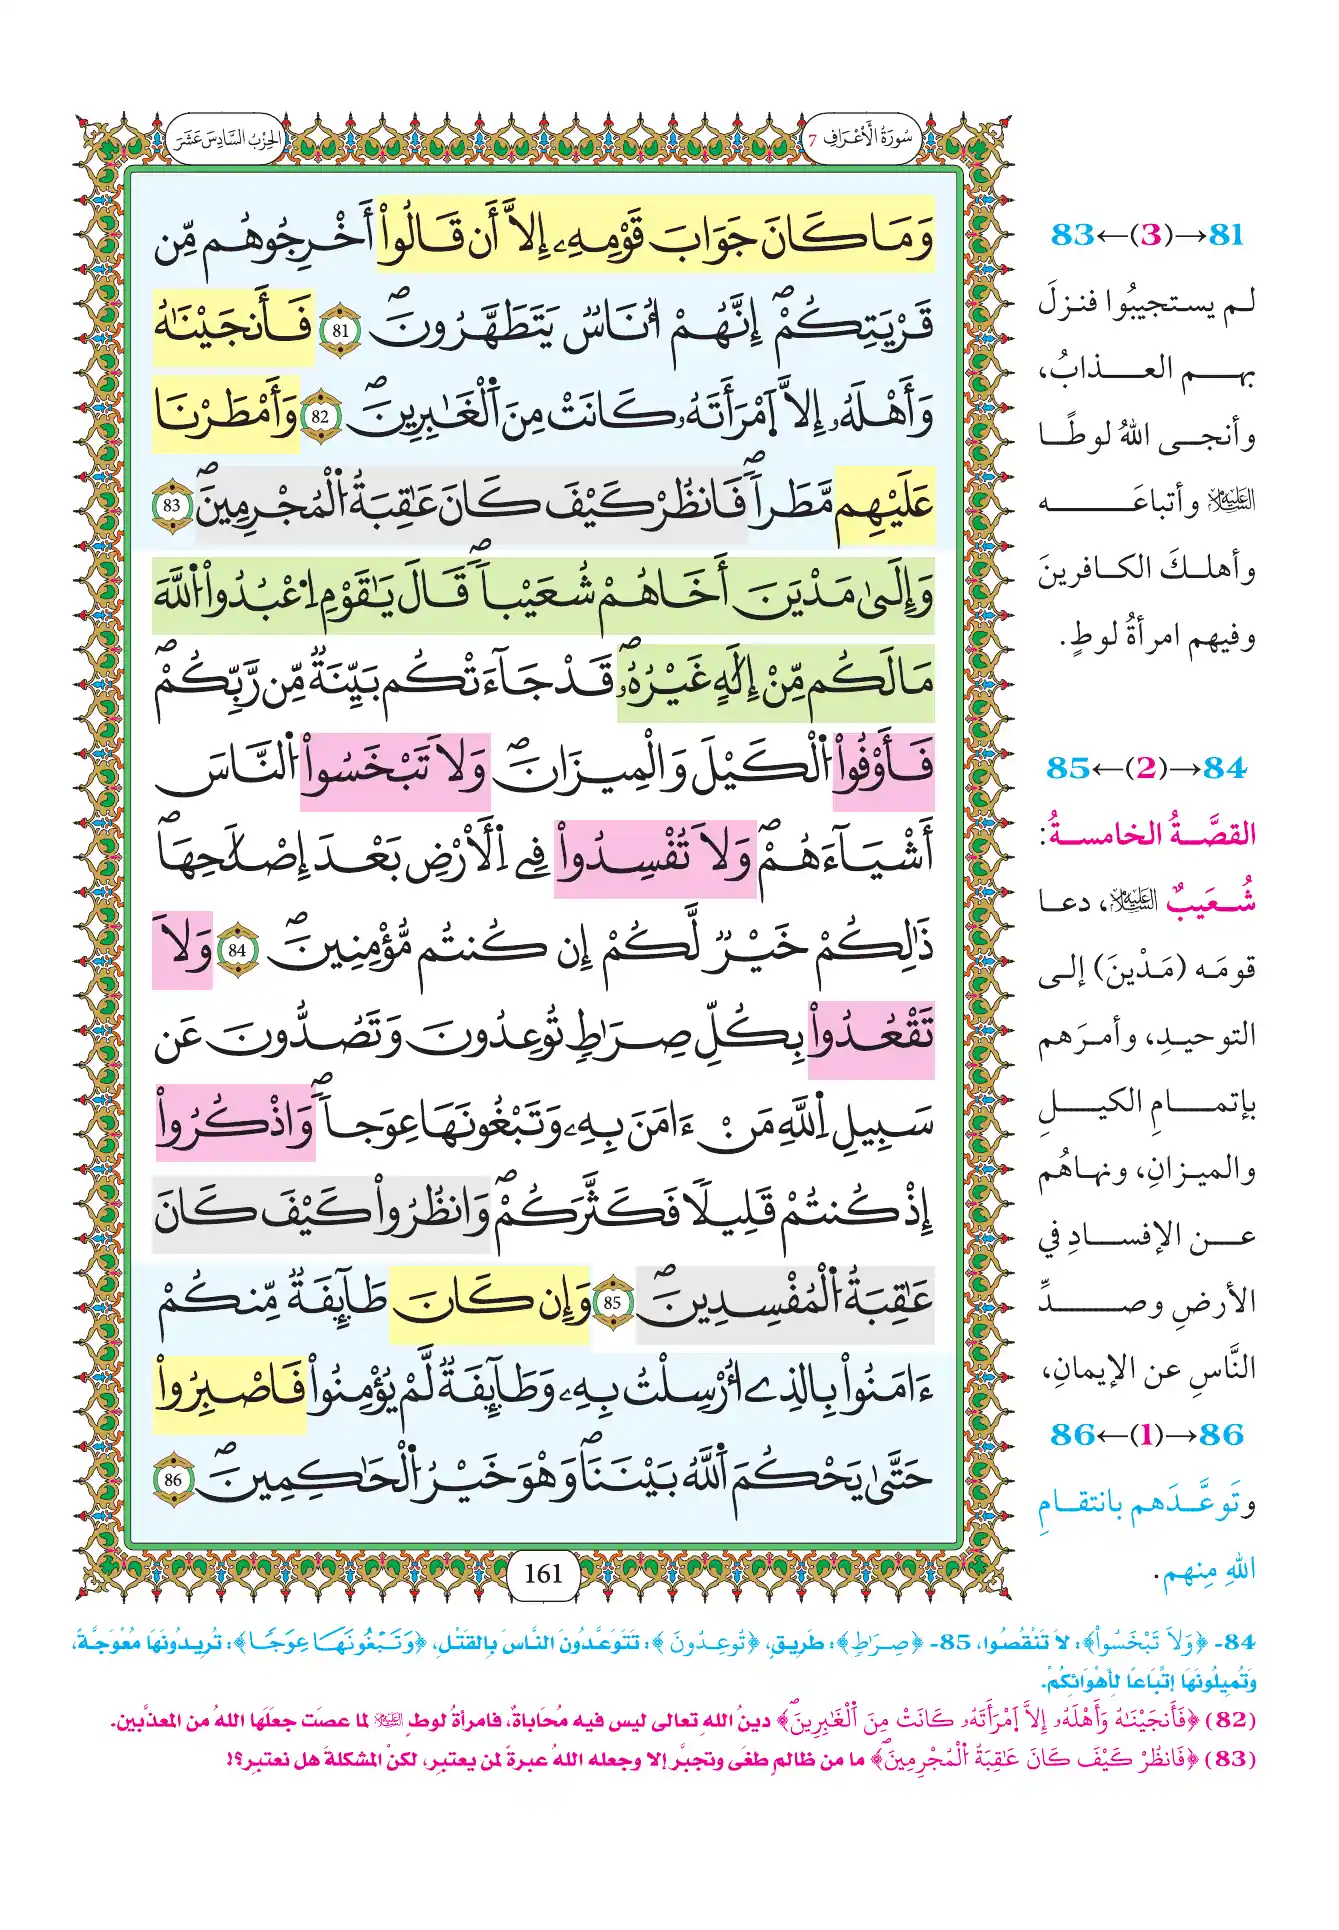 سُورَةُ الْأَعْرَافِ 7
الحِزْبُ السَّادِسَ عَشَرَ
وَمَا كَانَ جَوَابَ قَوْمِهِۦ إِلَّا أَن قَالُواْ أَخْرِجُوهُم مِّن
قَرْيَتِكُمْۖ إِنَّهُمْ أُنَاسٌ يَتَطَهَّرُونَۖ 81 فَأَنجَيْنَٰهُ
وَأَهْلَهُۥ إِلَّا اَمْرَأَتَهُۥ كَانَتْ مِنَ اَلْغَٰبِرِينَۖ 82 وَأَمْطَرْنَا
عَلَيْهِم مَّطَراٗۖ فَانظُرْ كَيْفَ كَانَ عَٰقِبَةُ اُلْمُجْرِمِينَۖ 83
وَإِلَىٰ مَدْيَنَ أَخَاهُمْ شُعَيْباٗۖ قَالَ يَٰقَوْمِ اِعْبُدُواْ اُللَّهَ
مَا لَكُم مِّنْ إِلَٰهٍ غَيْرُهُۥۖ قَدْ جَآءَتْكُم بَيِّنَةٌ مِّن رَّبِّكُمْۖ
فَأَوْفُواْ اُلْكَيْلَ وَالْمِيزَانَۖ وَلَا تَبْخَسُواْ اُلنَّاسَ
أَشْيَآءَهُمْۖ وَلَا تُفْسِدُواْ فِي اِلْأَرْضِ بَعْدَ إِصْلَٰحِهَاۖ
ذَٰلِكُمْ خَيْرٌ لَّكُمْ إِن كُنتُم مُّؤْمِنِينَۖ 84 وَلَا
تَقْعُدُواْ بِكُلِّ صِرَٰطٍ تُوعِدُونَ وَتَصُدُّونَ عَن
سَبِيلِ اِللَّهِ مَنْ ءَامَنَ بِهِۦ وَتَبْغُونَهَا عِوَجاٗۖ وَاذْكُرُواْ
إِذْ كُنتُمْ قَلِيلًا فَكَثَّرَكُمْۖ وَانظُرُواْ كَيْفَ كَانَ
عَٰقِبَةُ اُلْمُفْسِدِينَۖ 85 وَإِن كَانَ طَآئِفَةٌ مِّنكُمْ
ءَامَنُواْ بِالذِي أُرْسِلْتُ بِهِۦ وَطَآئِفَةٌ لَّمْ يُؤْمِنُواْ فَاصْبِرُواْ
حَتَّىٰ يَحْكُمَ اَللَّهُ بَيْنَنَاۖ وَهْوَ خَيْرُ اُلْحَٰكِمِينَۖ 86
161
81→(3)←83
لم يستجيبُوا فنزلَ
بهم العذابُ،
وأنجى اللهُ لوطًا
عليه السلام وأتباعَه
وأهلكَ الكافرينَ
وفيهم امرأةُ لوطٍ.
84→(2)←85
القصَّةُ الخامسةُ:
شُعَيبٌ عليه السلام، دعا
قومَه (مَدْينَ) إلى
التوحيدِ، وأمرَهم
بإتمامِ الكيلِ
والميزانِ، ونهاهُم
عن الإفسادِ في
الأرضِ وصدِّ
النَّاسِ عن الإيمانِ،
86→(1)←86
وتَوعَّدَهم بانتقامِ
اللهِ مِنهم.
84- ﴿وَلَا تَبْخَسُواْ﴾: لَا تَنْقُصُوا، 85- ﴿صِرَٰطٍ﴾: طَرِيقٍ، ﴿تُوعِدُونَ﴾: تَتَوَعَّدُونَ النَّاسَ بِالقَتْلِ، ﴿وَتَبْغُونَهَا عِوَجًا﴾: تُرِيدُونَهَا مُعْوَجَّةً،
وَتُمِيلُونَهَا اِتِّبَاعًا لِأَهْوَائِكُمْ.
(82) ﴿فَأَنجَيْنَٰهُ وَأَهْلَهُۥ إِلَّا اَمْرَأَتَهُۥ كَانَتْ مِنَ اَلْغَٰبِرِينَۖ﴾ دينُ اللهِ تعالى ليس فيه مُحَاباةٌ، فامرأةُ لوطٍ عليه السلام لما عصَت جعلَها اللهُ من المعذَّبين.
(83) ﴿فَانظُرْ كَيْفَ كَانَ عَٰقِبَةُ اُلْمُجْرِمِينَۖ﴾ ما من ظالمٍ طغَى وتجبَّر إلا وجعله اللهُ عبرةً لمن يعتبر، لكنْ المشكلة هل نعتبِر؟!